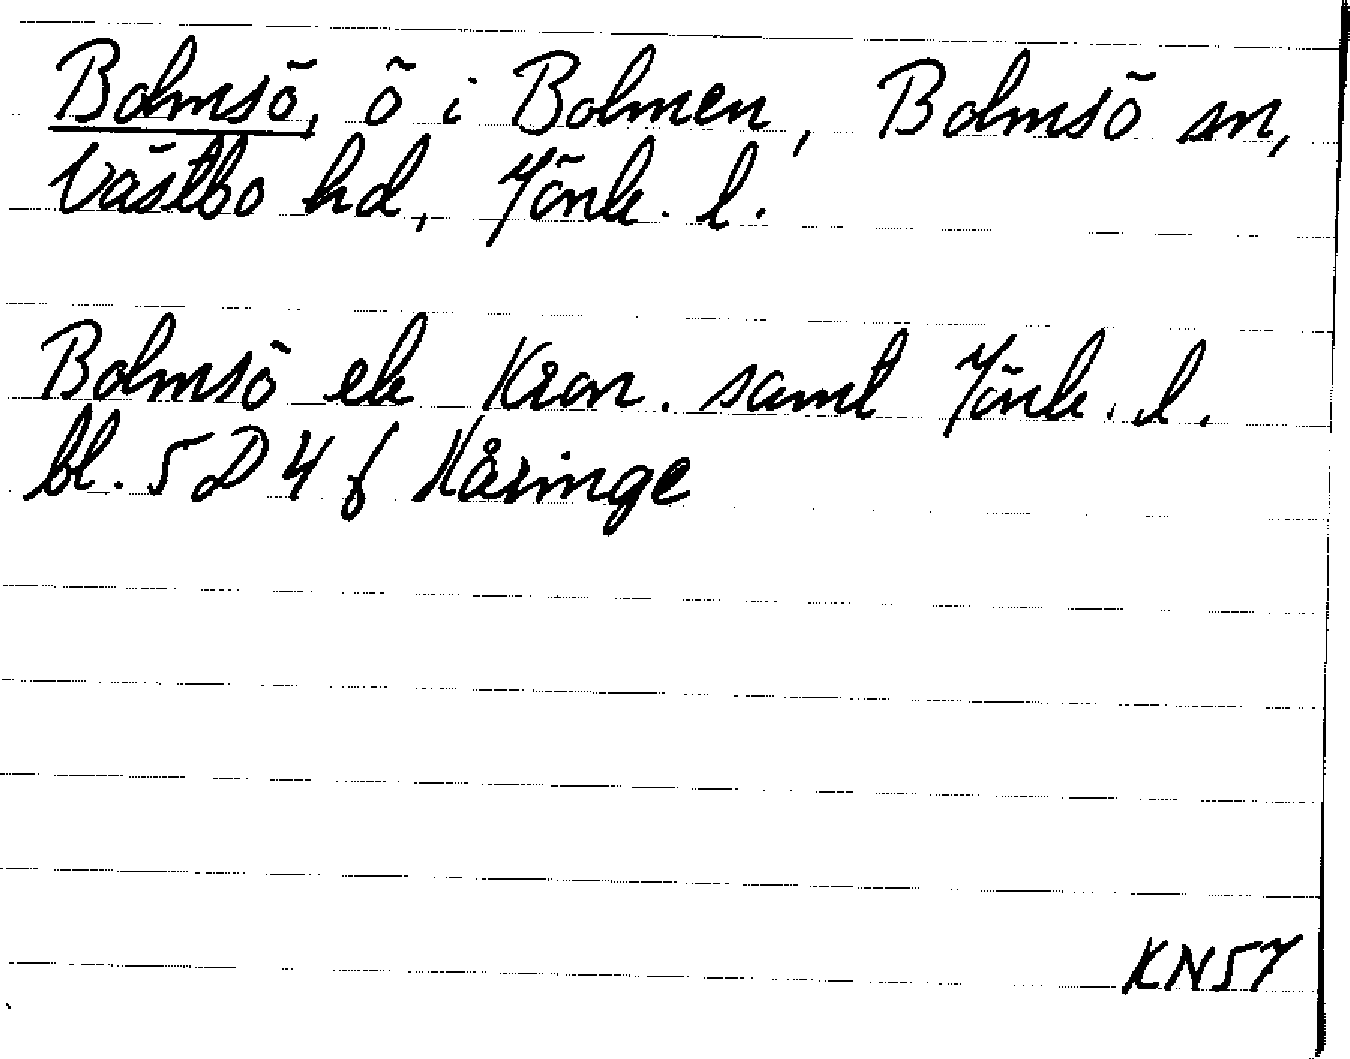 Bolmsö, ö i Bolmen, Bolmsö sn,
Västbo hd, Jönk. l.
Bolmsö ek Kron. samt Jönk. l.
bl. 5D4f Kåringe
KN57